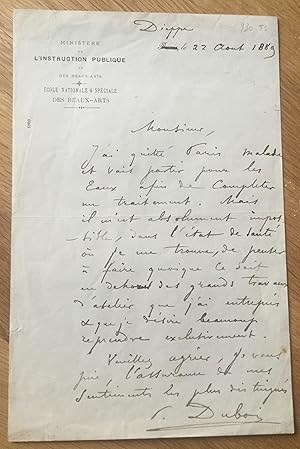 Dieppe
le 22 Aout 1889
MINISTERE
DE
L'INSTRUCTION PUBLIQUE
ET
DES BEAUX-ARTS
ÉCOLE NATIONALE & SPÉCIALE
DES BEAUX-ARTS
Monsieur,
J'ai quitté Paris malade
et vais partir pour les
Eaux afin de Compléter
un traitement. Mais
il m'est absolument impos
-sible, dans l'état de santé
où je me trouve, de penser
à faire quoique ce soit
en dehors des grands travaux
d'atelier que j'ai entrepris
& que je désire beaucoup
reprendre exclusivement.
Veuillez agréer, je vous
prie, l'assurance de mes
sentiments les plus distingués
P. Dubois